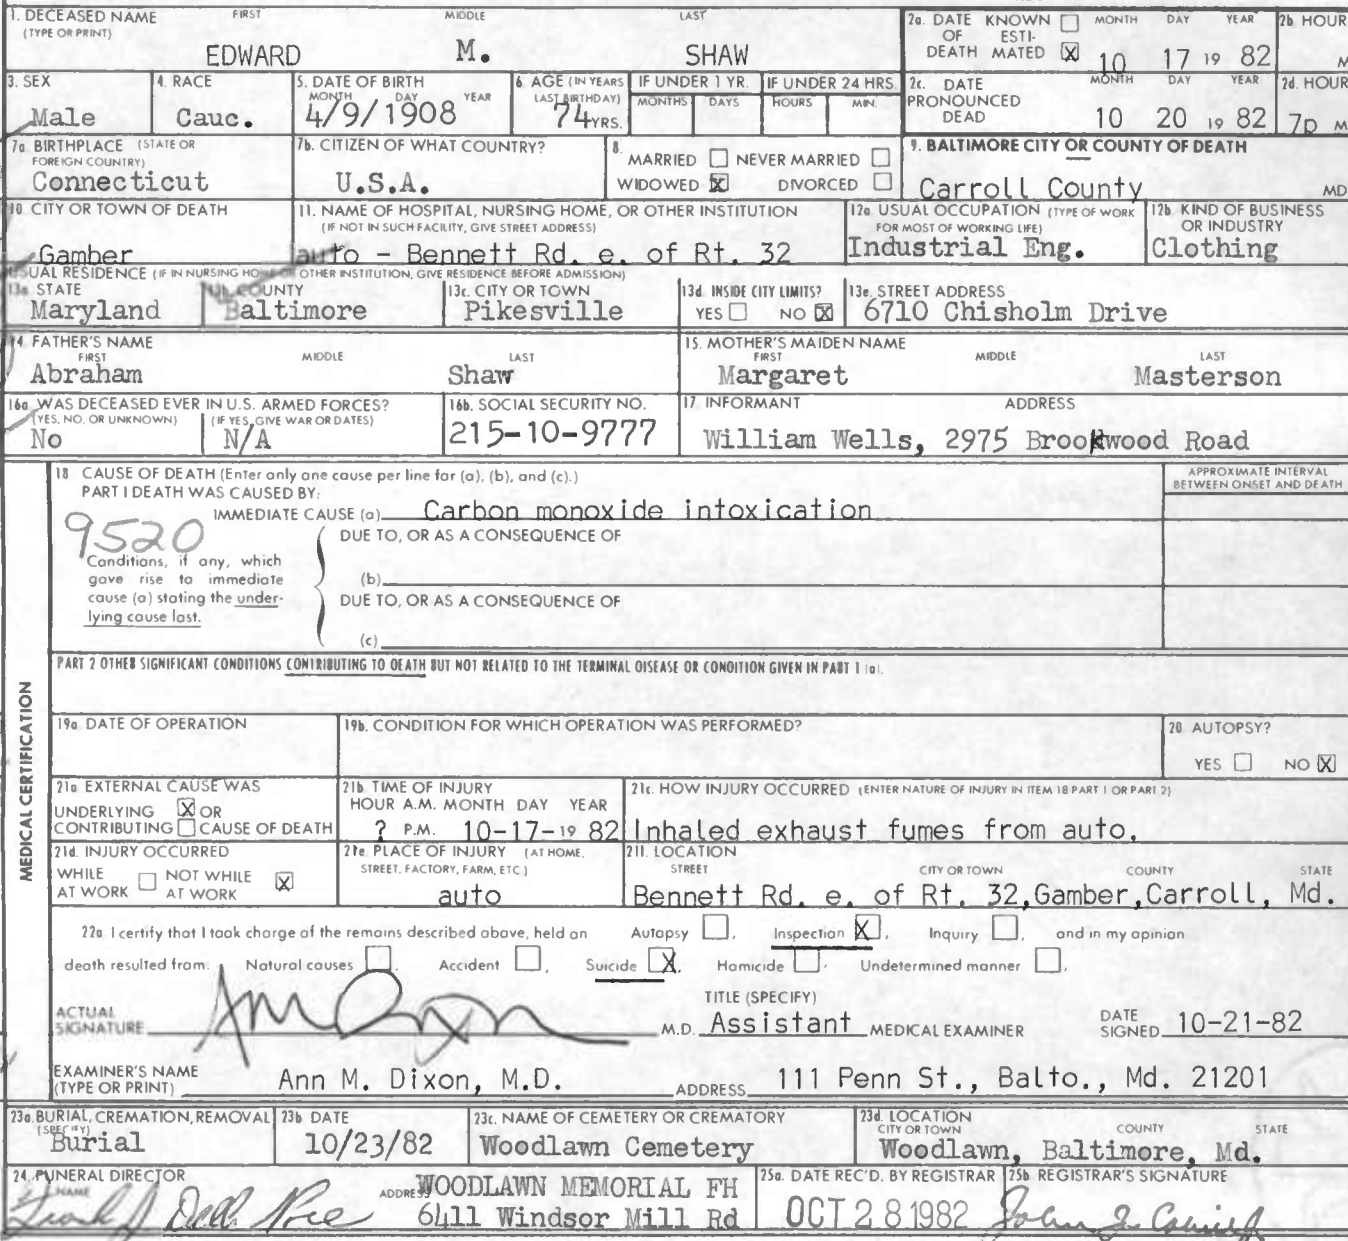 1. DECEASED NAME FIRST MIDDLE LAST
(TYPE OR PRINT)
EDWARD M. SHAW
2a. DATE KNOWN ☐ MONTH DAY YEAR 2b HOUR
OF ESTI-
DEATH MATED ☒ 10 17 19 82 M
3. SEX 4. RACE 5. DATE OF BIRTH 6. AGE (IN YEARS IF UNDER 1 YR. IF UNDER 24 HRS.
MONTH DAY YEAR LAST BIRTHDAY) MONTHS DAYS HOURS MIN.
Male Cauc. 4/9/1908 74 YRS.
2c. DATE MONTH DAY YEAR 2d. HOUR
PRONOUNCED
DEAD 10 20 19 82 7p M
7a. BIRTHPLACE (STATE OR
FOREIGN COUNTRY)
Connecticut
7b. CITIZEN OF WHAT COUNTRY?
U.S.A.
8.
MARRIED ☐ NEVER MARRIED ☐
WIDOWED ☒ DIVORCED ☐
9. BALTIMORE CITY OR COUNTY OF DEATH
Carroll County MD
10. CITY OR TOWN OF DEATH
Gamber
11. NAME OF HOSPITAL, NURSING HOME, OR OTHER INSTITUTION
(IF NOT IN SUCH FACILITY, GIVE STREET ADDRESS)
auto - Bennett Rd. e. of Rt. 32
12a. USUAL OCCUPATION (TYPE OF WORK
FOR MOST OF WORKING LIFE)
Industrial Eng.
12b. KIND OF BUSINESS
OR INDUSTRY
Clothing
USUAL RESIDENCE (IF IN NURSING HOME OR OTHER INSTITUTION, GIVE RESIDENCE BEFORE ADMISSION)
13a. STATE 13b. COUNTY 13c. CITY OR TOWN 13d. INSIDE CITY LIMITS? 13e. STREET ADDRESS
Maryland Baltimore Pikesville YES ☐ NO ☒ 6710 Chisholm Drive
14. FATHER'S NAME
FIRST MIDDLE LAST
Abraham Shaw
15. MOTHER'S MAIDEN NAME
FIRST MIDDLE LAST
Margaret Masterson
16a. WAS DECEASED EVER IN U.S. ARMED FORCES?
(YES, NO, OR UNKNOWN) (IF YES, GIVE WAR OR DATES)
No N/A
16b. SOCIAL SECURITY NO.
215-10-9777
17. INFORMANT ADDRESS
William Wells, 2975 Brookwood Road
MEDICAL CERTIFICATION
18. CAUSE OF DEATH (Enter only one cause per line for (a), (b), and (c).)
PART I DEATH WAS CAUSED BY:
APPROXIMATE INTERVAL
BETWEEN ONSET AND DEATH
IMMEDIATE CAUSE (a) Carbon monoxide intoxication
9520
DUE TO, OR AS A CONSEQUENCE OF
Conditions, if any, which
gave rise to immediate
cause (a) stating the under-
lying cause last.
(b)
DUE TO, OR AS A CONSEQUENCE OF
(c)
PART 2 OTHER SIGNIFICANT CONDITIONS CONTRIBUTING TO DEATH BUT NOT RELATED TO THE TERMINAL DISEASE OR CONDITION GIVEN IN PART 1 (a).
19a. DATE OF OPERATION
19b. CONDITION FOR WHICH OPERATION WAS PERFORMED?
20. AUTOPSY?
YES ☐ NO ☒
21a. EXTERNAL CAUSE WAS
UNDERLYING ☒ OR
CONTRIBUTING ☐ CAUSE OF DEATH
21b. TIME OF INJURY
HOUR A.M. MONTH DAY YEAR
? P.M. 10-17-19 82
21c. HOW INJURY OCCURRED (ENTER NATURE OF INJURY IN ITEM 18 PART 1 OR PART 2)
Inhaled exhaust fumes from auto.
21d. INJURY OCCURRED
WHILE ☐ NOT WHILE ☒
AT WORK AT WORK
21e. PLACE OF INJURY (AT HOME,
STREET, FACTORY, FARM, ETC.)
auto
21f. LOCATION
STREET CITY OR TOWN COUNTY STATE
Bennett Rd. e. of Rt. 32, Gamber, Carroll, Md.
22a. I certify that I took charge of the remains described above, held an Autopsy ☐, Inspection ☒, Inquiry ☐, and in my opinion
death resulted from: Natural causes ☐, Accident ☐, Suicide ☒, Homicide ☐, Undetermined manner ☐,
ACTUAL
SIGNATURE
M.D.
TITLE (SPECIFY)
Assistant MEDICAL EXAMINER
DATE
SIGNED 10-21-82
EXAMINER'S NAME
(TYPE OR PRINT) Ann M. Dixon, M.D. ADDRESS 111 Penn St., Balto., Md. 21201
23a. BURIAL, CREMATION, REMOVAL
(SPECIFY)
Burial
23b. DATE
10/23/82
23c. NAME OF CEMETERY OR CREMATORY
Woodlawn Cemetery
23d. LOCATION
CITY OR TOWN COUNTY STATE
Woodlawn, Baltimore, Md.
24. FUNERAL DIRECTOR
NAME
ADDRESS WOODLAWN MEMORIAL FH
6411 Windsor Mill Rd
25a. DATE REC'D. BY REGISTRAR
OCT 28 1982
25b. REGISTRAR'S SIGNATURE
John J.